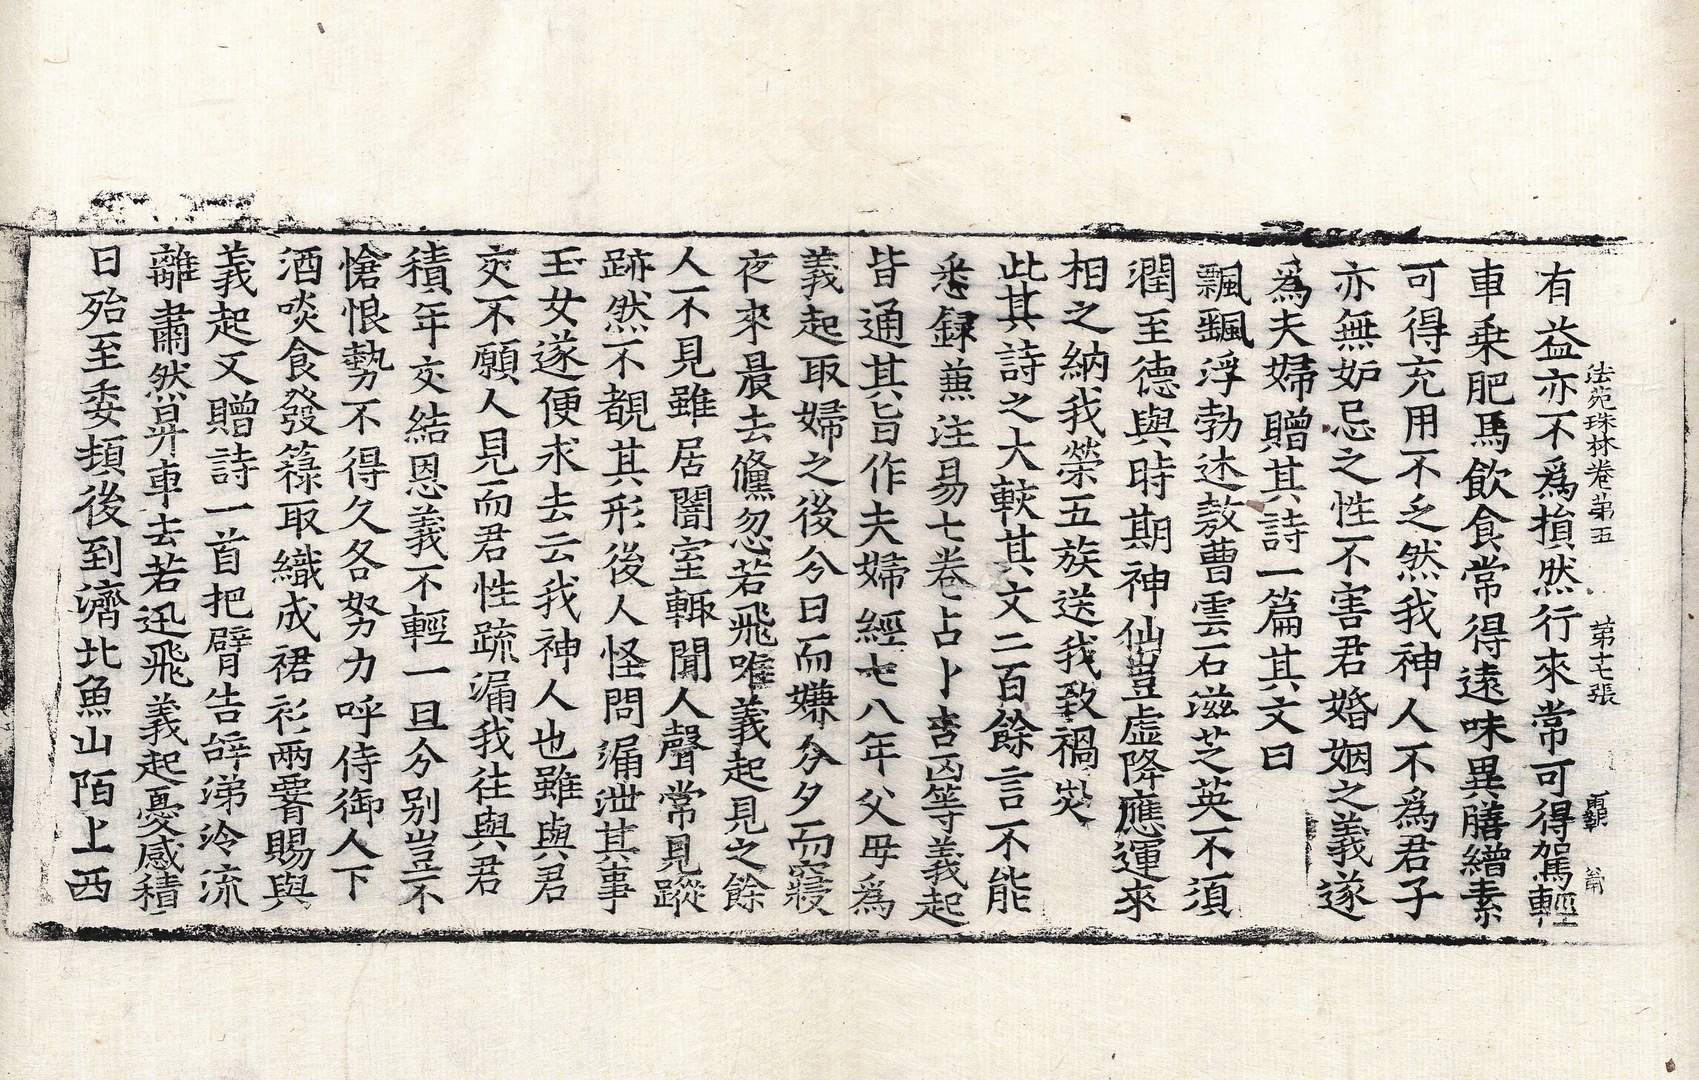 法苑珠林卷第五 第十七張 覇
有益亦不爲損然行來常可得駕輕
車乗肥馬飲食常得遠味異膳繒素
可得充用不乏然我神人不爲君子
亦無妬忌之性不害君婚姻之義遂
爲夫婦贈其詩一篇其文曰
飄颻浮勃述敖曹雲石滋芝英不須
潤至德與時期神仙豈虚降應運來
相之納我榮五族送我致禍災
此其詩之大較其文二百餘言不能
悉録兼注易七卷占卜吉凶等義起
皆通其旨作夫婦經七八年父母爲
義起取婦之後分日而嫌分夕而寢
夜來晨去儵忽若飛唯義起見之餘
人不見雖居闇室輙聞人聲常見蹤
跡然不覩其形後人怪問漏泄其事
玉女遂便求去云我神人也雖與君
交不願人見而君性疏漏我往與君
積年交結恩義不輕一旦分别豈不
愴恨勢不得久各努力呼侍御人下
酒啖食發簏取織成裙衫兩要賜與
義起又贈詩一首把臂告辝涕泠流
離肅然昇車去若迅飛義起憂感積
日殆至委頓後到濟北魚山陌上西